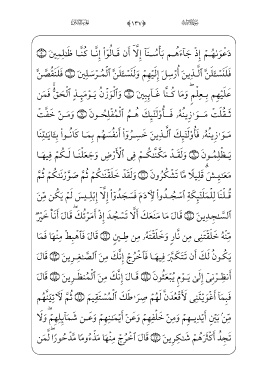 ﴿١٣٧﴾
دَعْوَىٰهُمْ إِذْ جَآءَهُم بَأْسُنَآ إِلَّآ أَن قَالُوٓا۟ إِنَّا كُنَّا ظَٰلِمِينَ
فَلَنَسْـَٔلَنَّ ٱلَّذِينَ أُرْسِلَ إِلَيْهِمْ وَلَنَسْـَٔلَنَّ ٱلْمُرْسَلِينَ فَلَنَقُصَّنَّ
عَلَيْهِم بِعِلْمٍ وَمَا كُنَّا غَآئِبِينَ وَٱلْوَزْنُ يَوْمَئِذٍ ٱلْحَقُّ فَمَن
ثَقُلَتْ مَوَٰزِينُهُۥ فَأُو۟لَٰٓئِكَ هُمُ ٱلْمُفْلِحُونَ وَمَنْ خَفَّتْ
مَوَٰزِينُهُۥ فَأُو۟لَٰٓئِكَ ٱلَّذِينَ خَسِرُوٓا۟ أَنفُسَهُم بِمَا كَانُوا۟ بِـَٔايَٰتِنَا
يَظْلِمُونَ وَلَقَدْ مَكَّنَّٰكُمْ فِى ٱلْأَرْضِ وَجَعَلْنَا لَكُمْ فِيهَا
مَعَٰيِشَ قَلِيلًا مَّا تَشْكُرُونَ وَلَقَدْ خَلَقْنَٰكُمْ ثُمَّ صَوَّرْنَٰكُمْ ثُمَّ
قُلْنَا لِلْمَلَٰٓئِكَةِ ٱسْجُدُوا۟ لِـَٔادَمَ فَسَجَدُوٓا۟ إِلَّآ إِبْلِيسَ لَمْ يَكُن مِّنَ
ٱلسَّٰجِدِينَ قَالَ مَا مَنَعَكَ أَلَّا تَسْجُدَ إِذْ أَمَرْتُكَ قَالَ أَنَا۠ خَيْرٌ
مِّنْهُ خَلَقْتَنِى مِن نَّارٍ وَخَلَقْتَهُۥ مِن طِينٍ قَالَ فَٱهْبِطْ مِنْهَا فَمَا
يَكُونُ لَكَ أَن تَتَكَبَّرَ فِيهَا فَٱخْرُجْ إِنَّكَ مِنَ ٱلصَّٰغِرِينَ قَالَ
أَنظِرْنِىٓ إِلَىٰ يَوْمِ يُبْعَثُونَ قَالَ إِنَّكَ مِنَ ٱلْمُنظَرِينَ قَالَ
فَبِمَآ أَغْوَيْتَنِى لَأَقْعُدَنَّ لَهُمْ صِرَٰطَكَ ٱلْمُسْتَقِيمَ ثُمَّ لَـَٔاتِيَنَّهُم
مِّنۢ بَيْنِ أَيْدِيهِمْ وَمِنْ خَلْفِهِمْ وَعَنْ أَيْمَٰنِهِمْ وَعَن شَمَآئِلِهِمْ وَلَا
تَجِدُ أَكْثَرَهُمْ شَٰكِرِينَ قَالَ ٱخْرُجْ مِنْهَا مَذْءُومًا مَّدْحُورًا لَّمَن